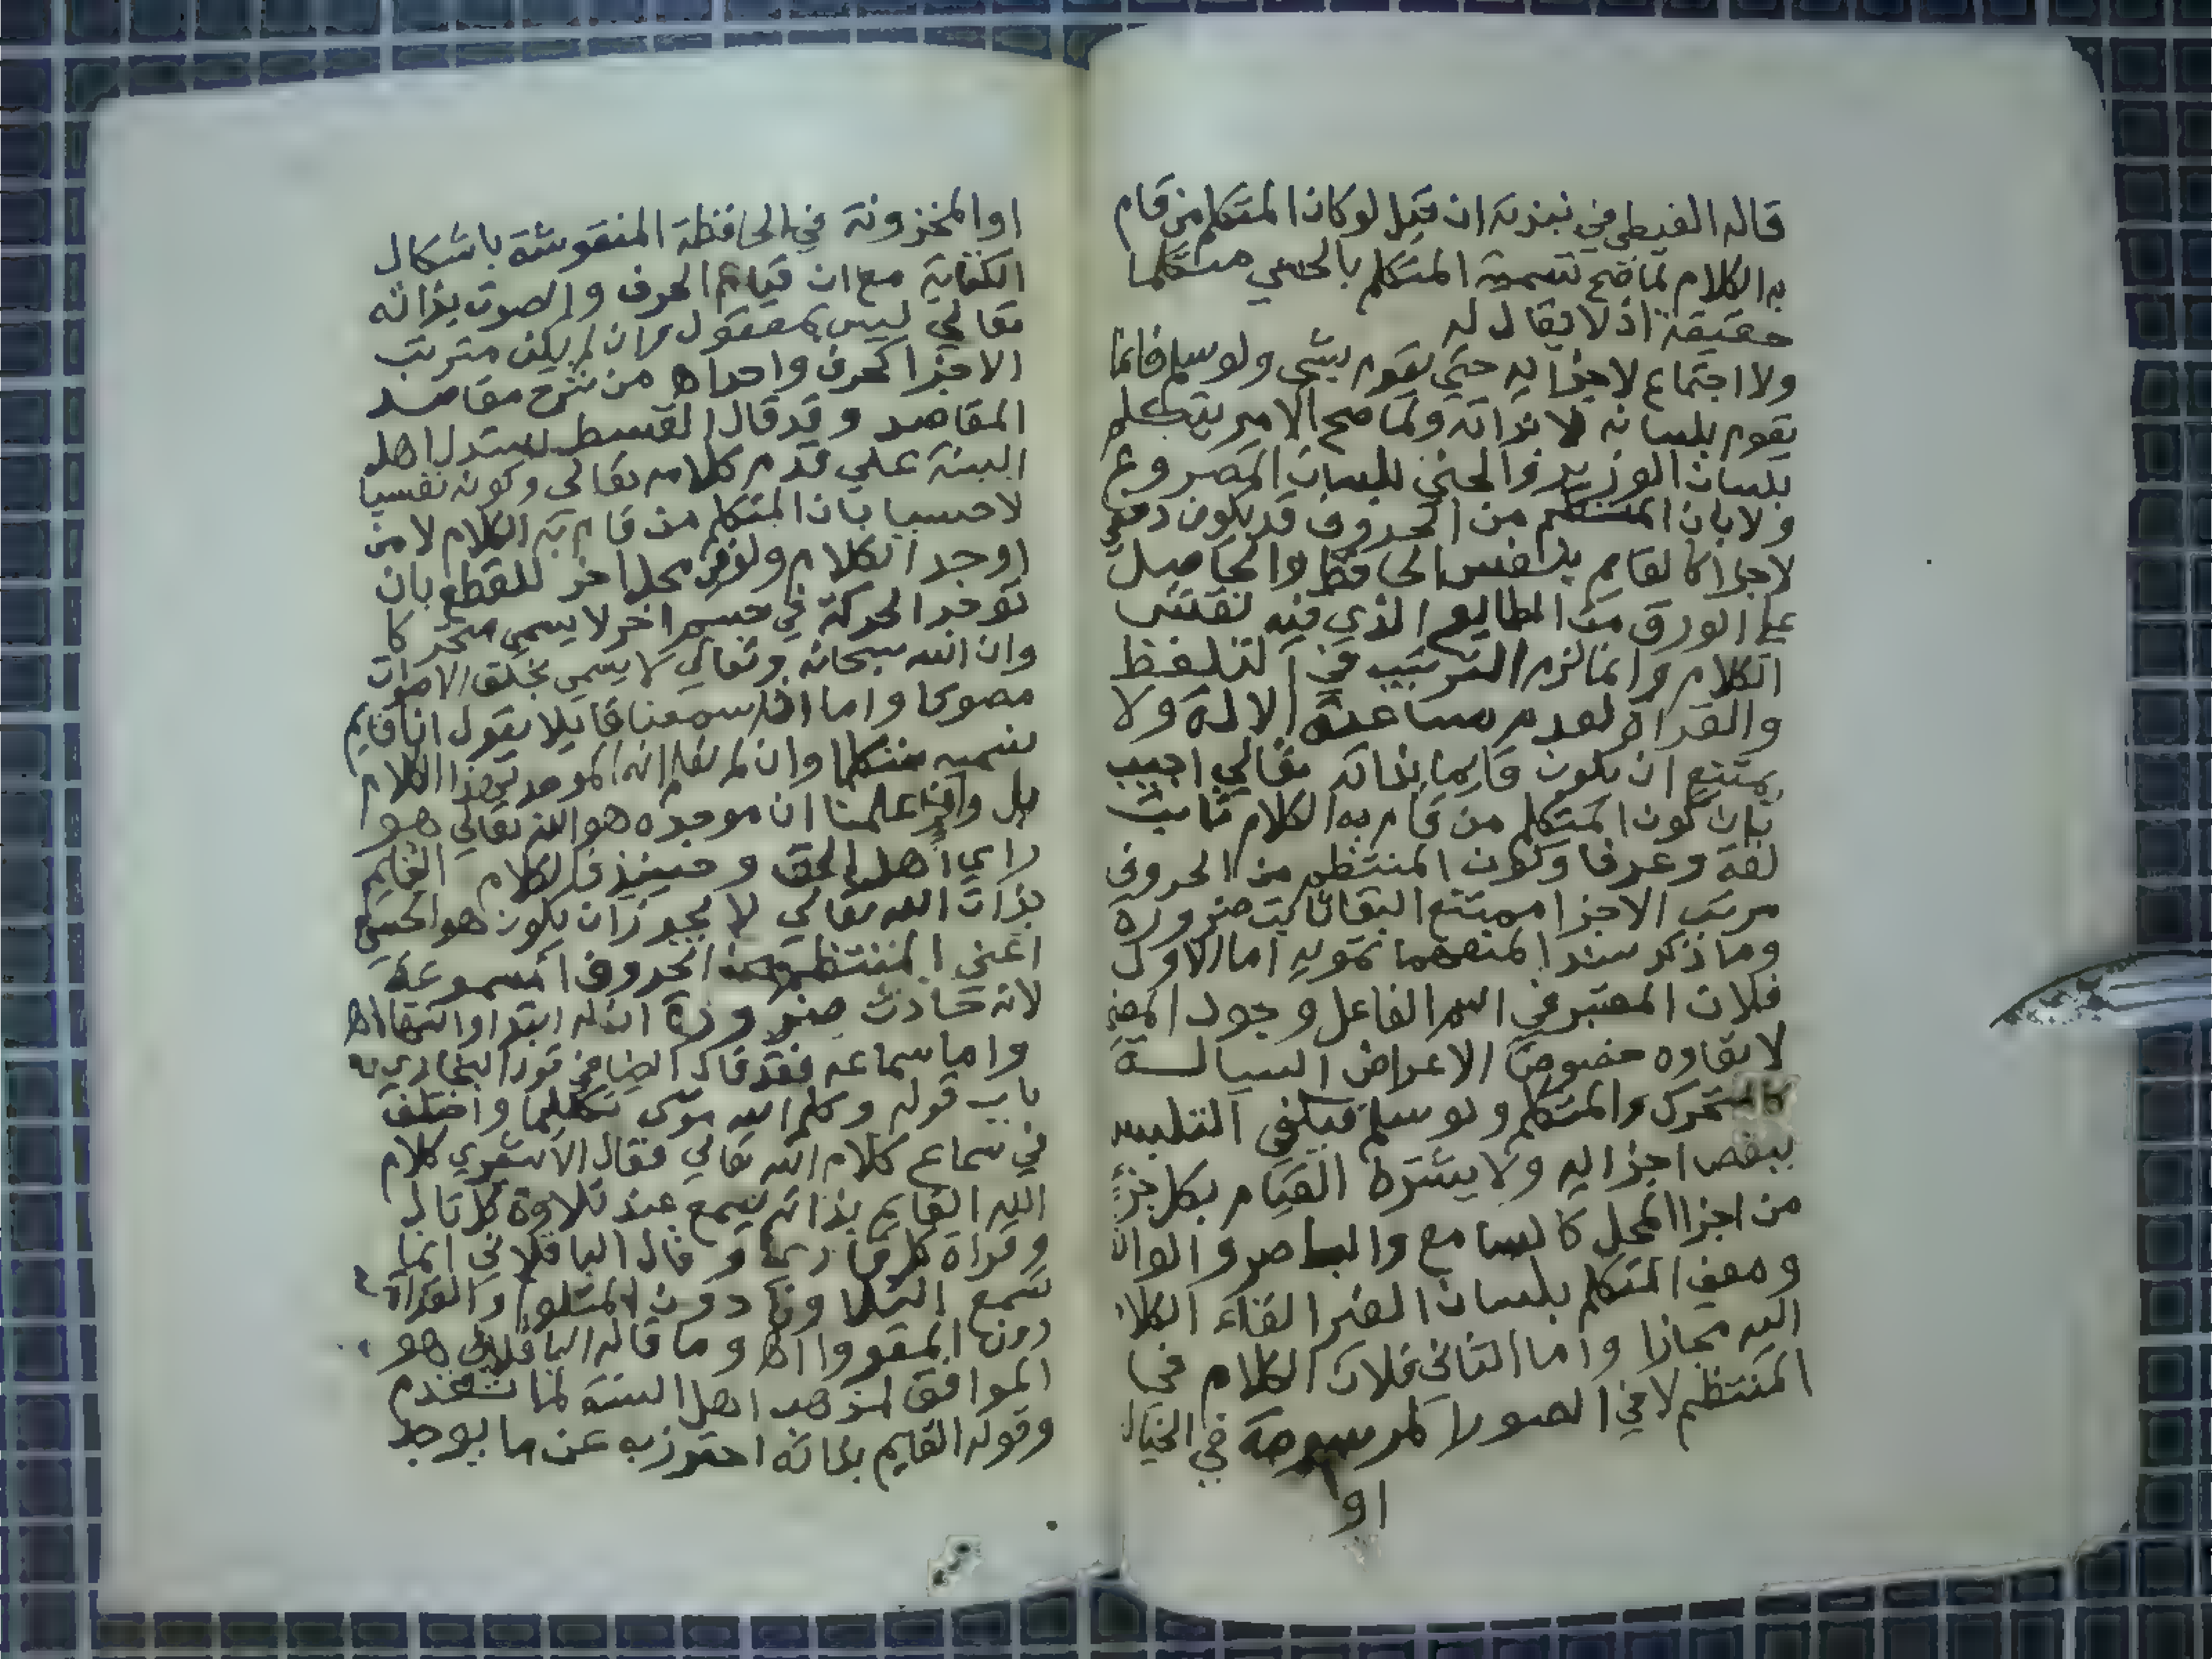 قاله الغيطي في نبذته ان قيل لوكان المتكلم من قام
به الكلام لما صح تسمية المتكلم بالحسي متكلما
حقيقة اذ لا بقا له
ولا اجتماع لاجزايه حتي يقوم بشي ولو سلم فانما
يقوم بلسانه لا بذاته ولما صح الامير يتكلم
بلسان الوزير والجني بلسان المصروع
ولا بان المنتظم من الحروف قد يكون دفعي
لاجزا كالقايم بنفس الحافظ والحاصل
علي الورق من الطابع الذي فيه نقش
الكلام وانما لزم الترتيب في التلفظ
والقراة لعدم مساعدة الالة ولا
يمتنع ان يكون قايما بذاته تعالي اجيب
بان كون المتكلم من قام به الكلام ثابت
لغة وعرفا وكون المنتظم من الحروف
مرتب الاجزا ممتنع البقا ثابت ضرورة
وما ذكر سندا لمنعهما تمويه اما الاول
فلان المعتبر في اسم الفاعل وجود المعني
لا بقاوه خصوصا الاعراض السيالة
كالمتحرك والمتكلم ولو سلم فيكفي التلبس
ببعض اجزايه ولا يشترط القيام بكل جزء
من اجزا المحل كالسامع والباصر والوان
ومعني المتكلم بلسان الغير القاء الكلام
اليه مجازا واما الثاني فلان الكلام في
المنتظم لا في الصور المرسومة في الخيال
او
او المخزونة في الحافظة المنقوشة باشكال
الكتابة مع ان قيام الحرف والصوت بذاته
تعالي ليس بمعقول وان لم يكن مترتب
الاجزا كحرف واحد اه من شرح مقاصد
المقاصد وقد قال القسط يستدل اهل
السنة علي قدم كلامه تعالي وكونه نفسيا
لا حسيا بان المتكلم من قام به الكلام لا من
اوجد الكلام ولو في محل اخر للقطع بان
توجد الحركة في جسم اخر لا يسمي متحركا
وان الله سبحانه وتعالي لا يسمي بخلق الاصوات
مصوتا واما اذا سمعنا قايلا يقول انا قايم
نسميه متكلما وان لم نعلم انه الموجد لهذا الكلام
بل وان علمنا ان موجده هو الله تعالي هو
راي اهل الحق وحينيذ فالكلام القايم
بذات الله تعالي لا يجوز ان يكون هو الحسي
اعني المنتظم من الحروف المسموعة
لانه حادث ضرورة ان له ابتدا وانتها اه
واما سماعه فقد قال ايضا في قول البخاري
باب قوله وكلم الله موسى تكليما واختلف
في سماع كلام الله تعالي فقال الاشعري كلام
الله القايم بذاته يسمع عند تلاوة كل تال
وقراة كل قاري وقال الباقلاني انما
تسمع التلاوة دون المتلو والقراة
دون المقروا اه وما قاله الباقلاني هو
الموافق لمذهب اهل السنة لما تقدم
وقوله القايم بذاته احترز به عن ما يوجد